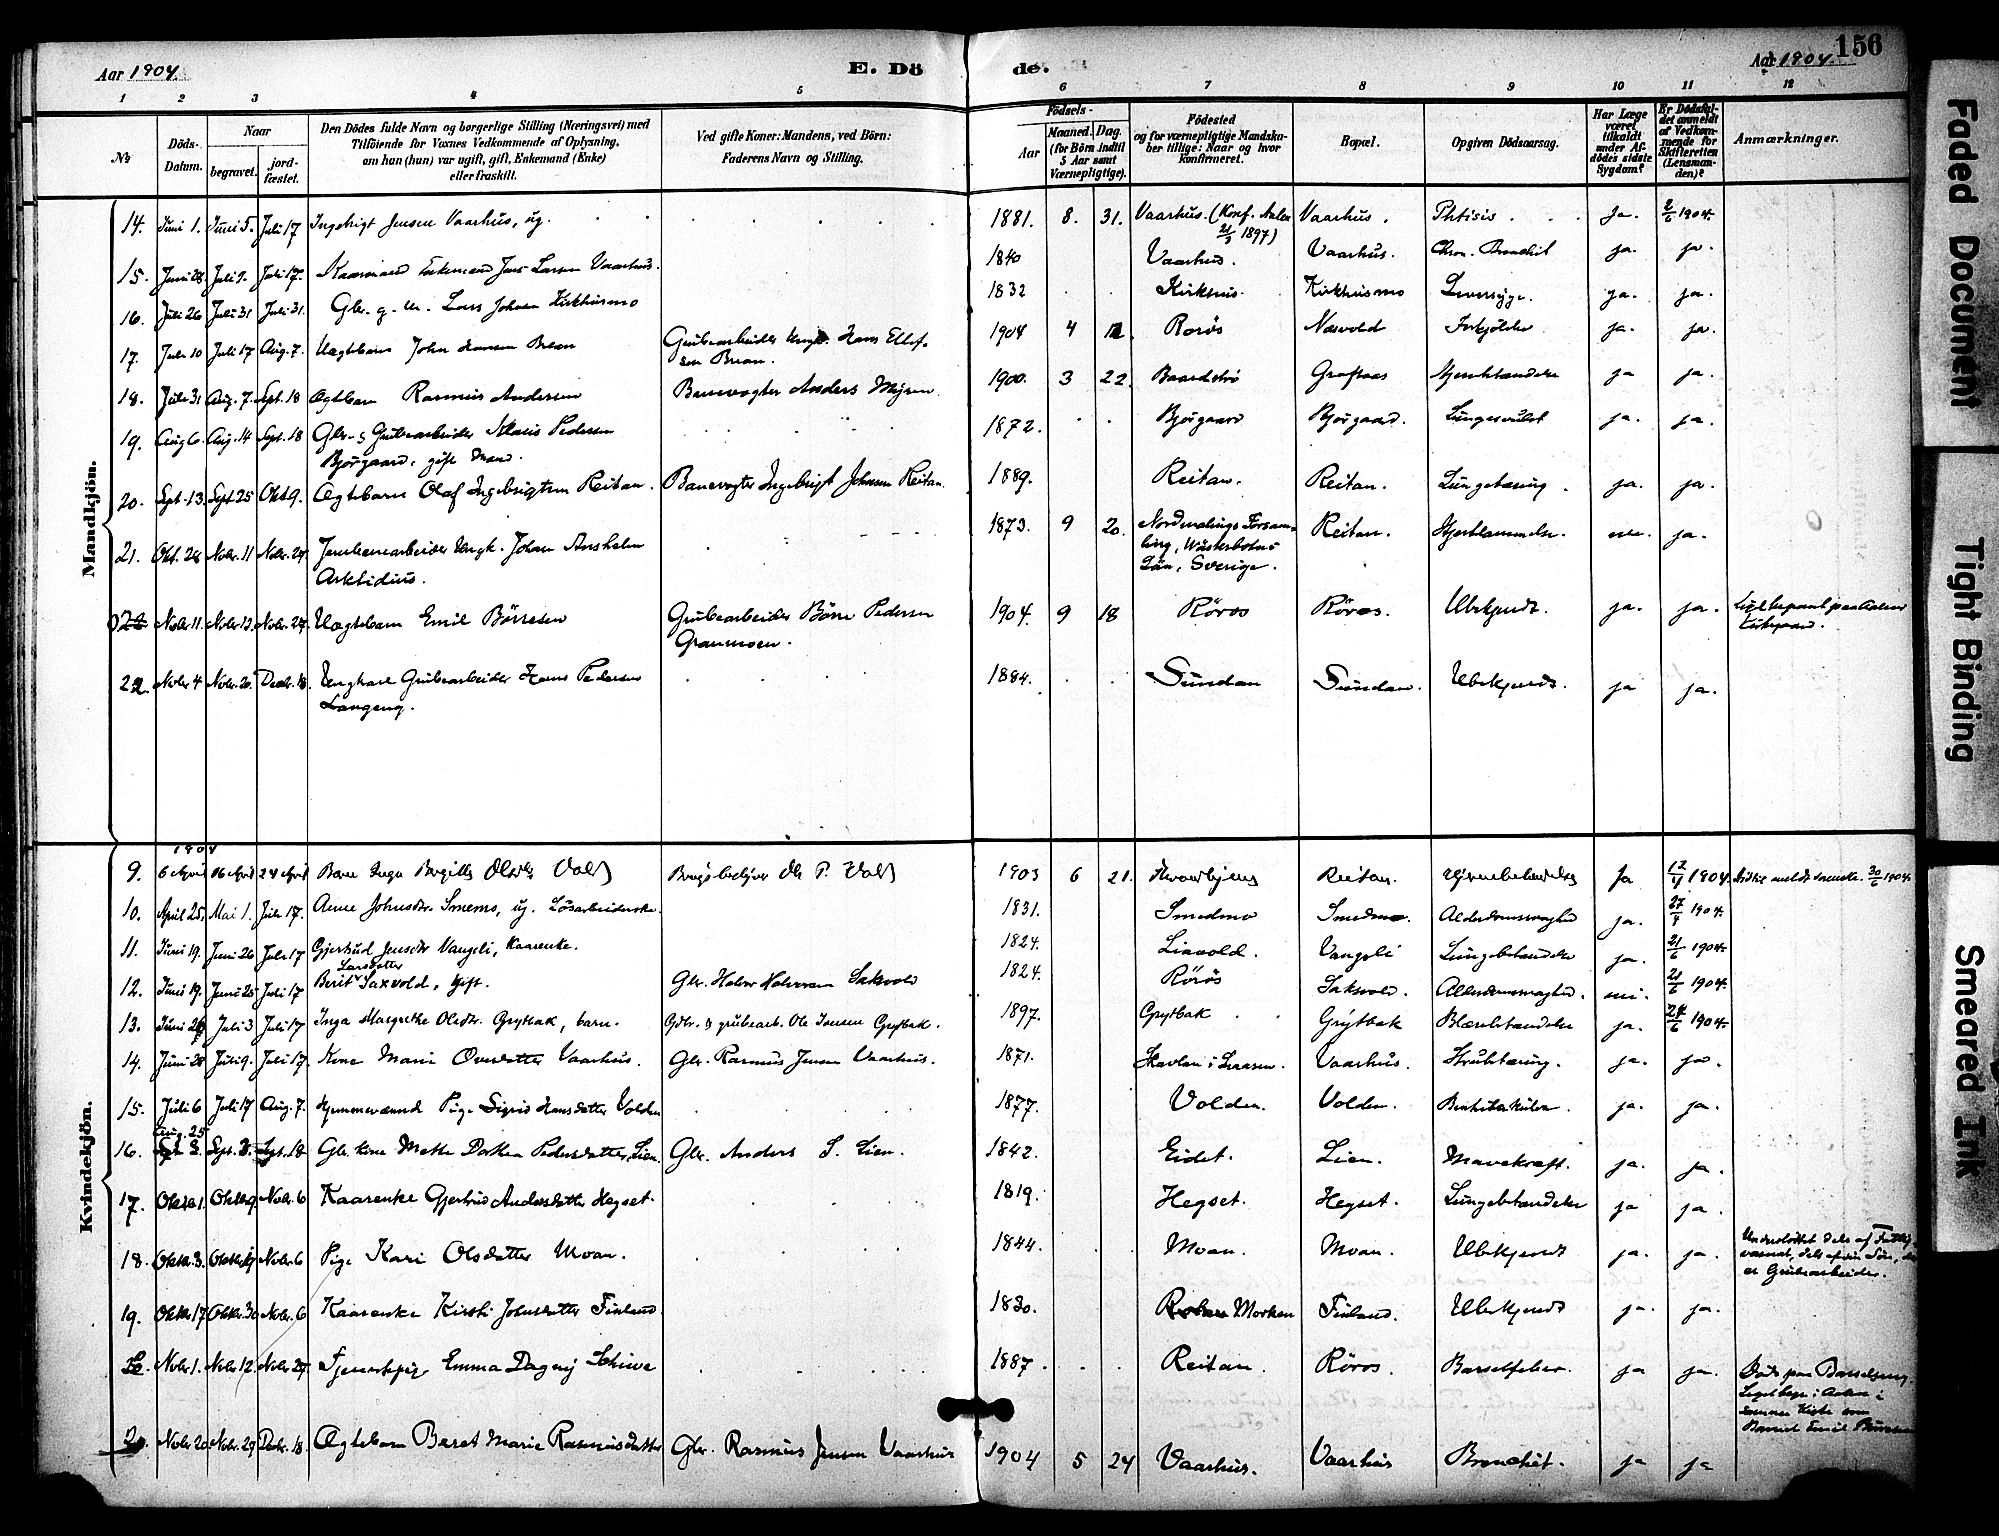 Aar 1904.
E. Döde.
Aar 1904.
156
1 2 3 4 5 6 7 8 9 10 11 12
№
Döds-Datum.
Naar
begravet.
jord-fæstet.
Den Dödes fulde Navn og borgerlige Stilling (Næringsvei) med
Tilföiende for Voxnes Vedkommende af Oplysning,
om han (hun) var ugift, gift, Enkemand (Enke)
eller fraskilt.
Ved gifte Koner: Mandens, ved Börn:
Faderens Navn og Stilling.
Födsels-
Aar
Maaned. Dag.
(for Börn indtil
5 Aar samt
Værnepligtige).
Födested
og for værnepligtige Mandska-
ber tillige: Naar og hvor
konfirmeret.
Bopæl.
Opgiven Dödsaarsag.
Har Læge
været
tilkaldt
under Af-
dödes sidste
Sygdom?
Er Dödsfal-
det anmeldt
af Vedkom-
mende for
Skifteretten
(Lensman-
den)?
Anmærkninger.
Mandkjön.
14. Juni 1. Juni 5. Juli 17 Ingebrigt Jensen Vaarhus, ug. 1881. 8. 31. Vaarhus. (Konf. Aalen Vaarhus. Phtisis Ja. 2/6 1904.
21/3 1897)
15. Juni 28 Juli 9. Juli 17. Kaarmand Enkemand Jens Larsen Vaarhus. 1840 Vaarhus. Vaarhus. Chron. Bronchit ja. ja.
16. Juli 26 Juli 31 Juli 31. Gbr. g. m. Lars Johnsen Kirkhusmo 1832 Kirkhus. Kirkhusmo Leversyge. ja. ja.
17. Juli 10 Juli 17 Aug. 7. Uægtebarn John Hansen Brean Grubearbeider Ungk. Hans Ellef- 1904 4 12 Rorös Næsvold Forkjölelse ja. ja.
sen Brean.
18. Juli 31 Aug. 7. Sept. 18 Ægtebarn Rasmus Andersen Banevogter Anders Myren 1900. 3 22. Baardströ Graftaas Hjernebetændelse ja ja.
19. Aug 6 Aug. 14 Sept. 18 Gbr. & Grubearbeider Nils Pedersen 1872. Bjørgaard Bjørgaard. Lungesvulst ja. ja.
Bjørgaard, gift Mand.
20. Sept. 13. Sept 25 Okt. 9. Ægtebarn Olaf Ingebrigtsen Reitan. Banevogter Ingebrigt Johnsen Reitan. 1889. Reitan. Reitan. Lungetæring. ja. ja.
21. Okt. 28 Novbr. 11 Novbr. 27 Jernbanearbeider Ungk. Johan Anshelm 1873. 9 20. Nordmalings Forsam- Reitan. Hjertelammelse. nei. ja.
Arkhidius. ling, Wästerbotns
Län, Sverige.
22 Novbr 11. Novbr 13. Novbr. 27 Uægtebarn Emil Börresen Grubearbeider Börre Pedersen 1904. 9 18 Röros Röros. Ubekjendt. ja. ja. Lig begravet paa Aalens
Granmoen. Kirkegaard.
22. Novbr 4 Novbr. 20. Decbr. 18. Ungkarl Grubearbeider Hans Pedersen 1884. Sundan Sundan. Ubekjendt. ja ja.
Langeng.
Kvindekjön.
1904
9. 6 April 16 April 24 April Barn Inga Birgitte Olsdtr Vold Brugsbestyrer Ole P. Vold 1903 6 21. Reitan. Hjernebetændelse Ja 12/4 1904. 30/6 1904.
10. April 25. Mai 1. Juli 17. Anne Johnsdtr. Smemo, ug. Lösarbeiderske. 1831. Smedmo Smedmo. Alderdomssvaghed ja. 27/4 1904.
11. Juni 19. Juni 26 Juli 17 Gjertrud Jensdtr Vangeli, Kaarenke. 1824. Liavold. Vangeli Lungebetændelse ja. 21/6 1904.
Larsdatter
12. Juni 19. Juni 25 Juli 17 Berit Saxvold, Gift. Gbr. Halvor Halvorsen Saksvold 1824. Rörös Saksvold. Alderdomssvaghed. nei. 21/6 1904.
13. Juni 24 Juli 3 Juli 17 Inga Margrethe Olsdtr. Grytbak, barn. Gbr. & grubearb. Ole Jonsen Grytbak. 1897. Grytbak Grytbak Blærebetændelse ja. 24/6 1904
14. Juni 28 Juli 9. Juli 17. Kone Marie Ovesdatter Vaarhus. Gbr. Rasmus Jensen Vaarhus. 1871. Havlan i Singsaas. Vaarhus. Strubetæring. ja. ja.
15. Juli 6 Juli 17 Aug. 7. Hjemmeværende Pige Sigrid Hansdatter Volden 1877. Volden. Volden. ja. ja.
Aug. 25
16. Sept. 3. Sept. 18 Gbr. kone Mette Dorthea Pedersdatter Lien. Gbr. Anders S. Lien. 1842. Eidet. Lien. Mavekræft. ja. ja.
17. Oktbr 1. Oktbr 9. Novbr. 6 Kaarenke Gjertrud Andersdatter Hegset. 1819. Hegset. Hegset. Lungebetændelse ja ja.
18. Oktbr. 3. Oktbr Novbr. 6 Pige Kari Olsdatter Moan. 1844. Moan. Moan. Ubekjendt ja. ja. Understöttet dels af Fattig-
væsenet, dels af sin Sön, der
er Grubearbeider.
19. Oktbr 17 Oktbr. 30 Novbr. 6 Kaarenke Kirsti Johnsdatter Finland. 1830. Morken Finland. Ubekjendt ja. ja.
20. Novbr. 1. Novbr. 12. Novbr. 27 Tjenestepige Emma Dagny Schive 1887. Reitan. Röros. Barselfeber. ja ja. Död paa Barselseng
Ligebegr. i Aalen i
samme Kiste som
Barnet Emil Börresen
20. Novbr. 20 Novbr. 29 Decbr. 18. Ægtebarn Beret Marie Rasmusdatter Gbr. Rasmus Jensen Vaarhus 1904 5 24 Vaarhus. Vaarhus Bronchit. ja ja
Faded Document
Tight Binding
Smeared Ink